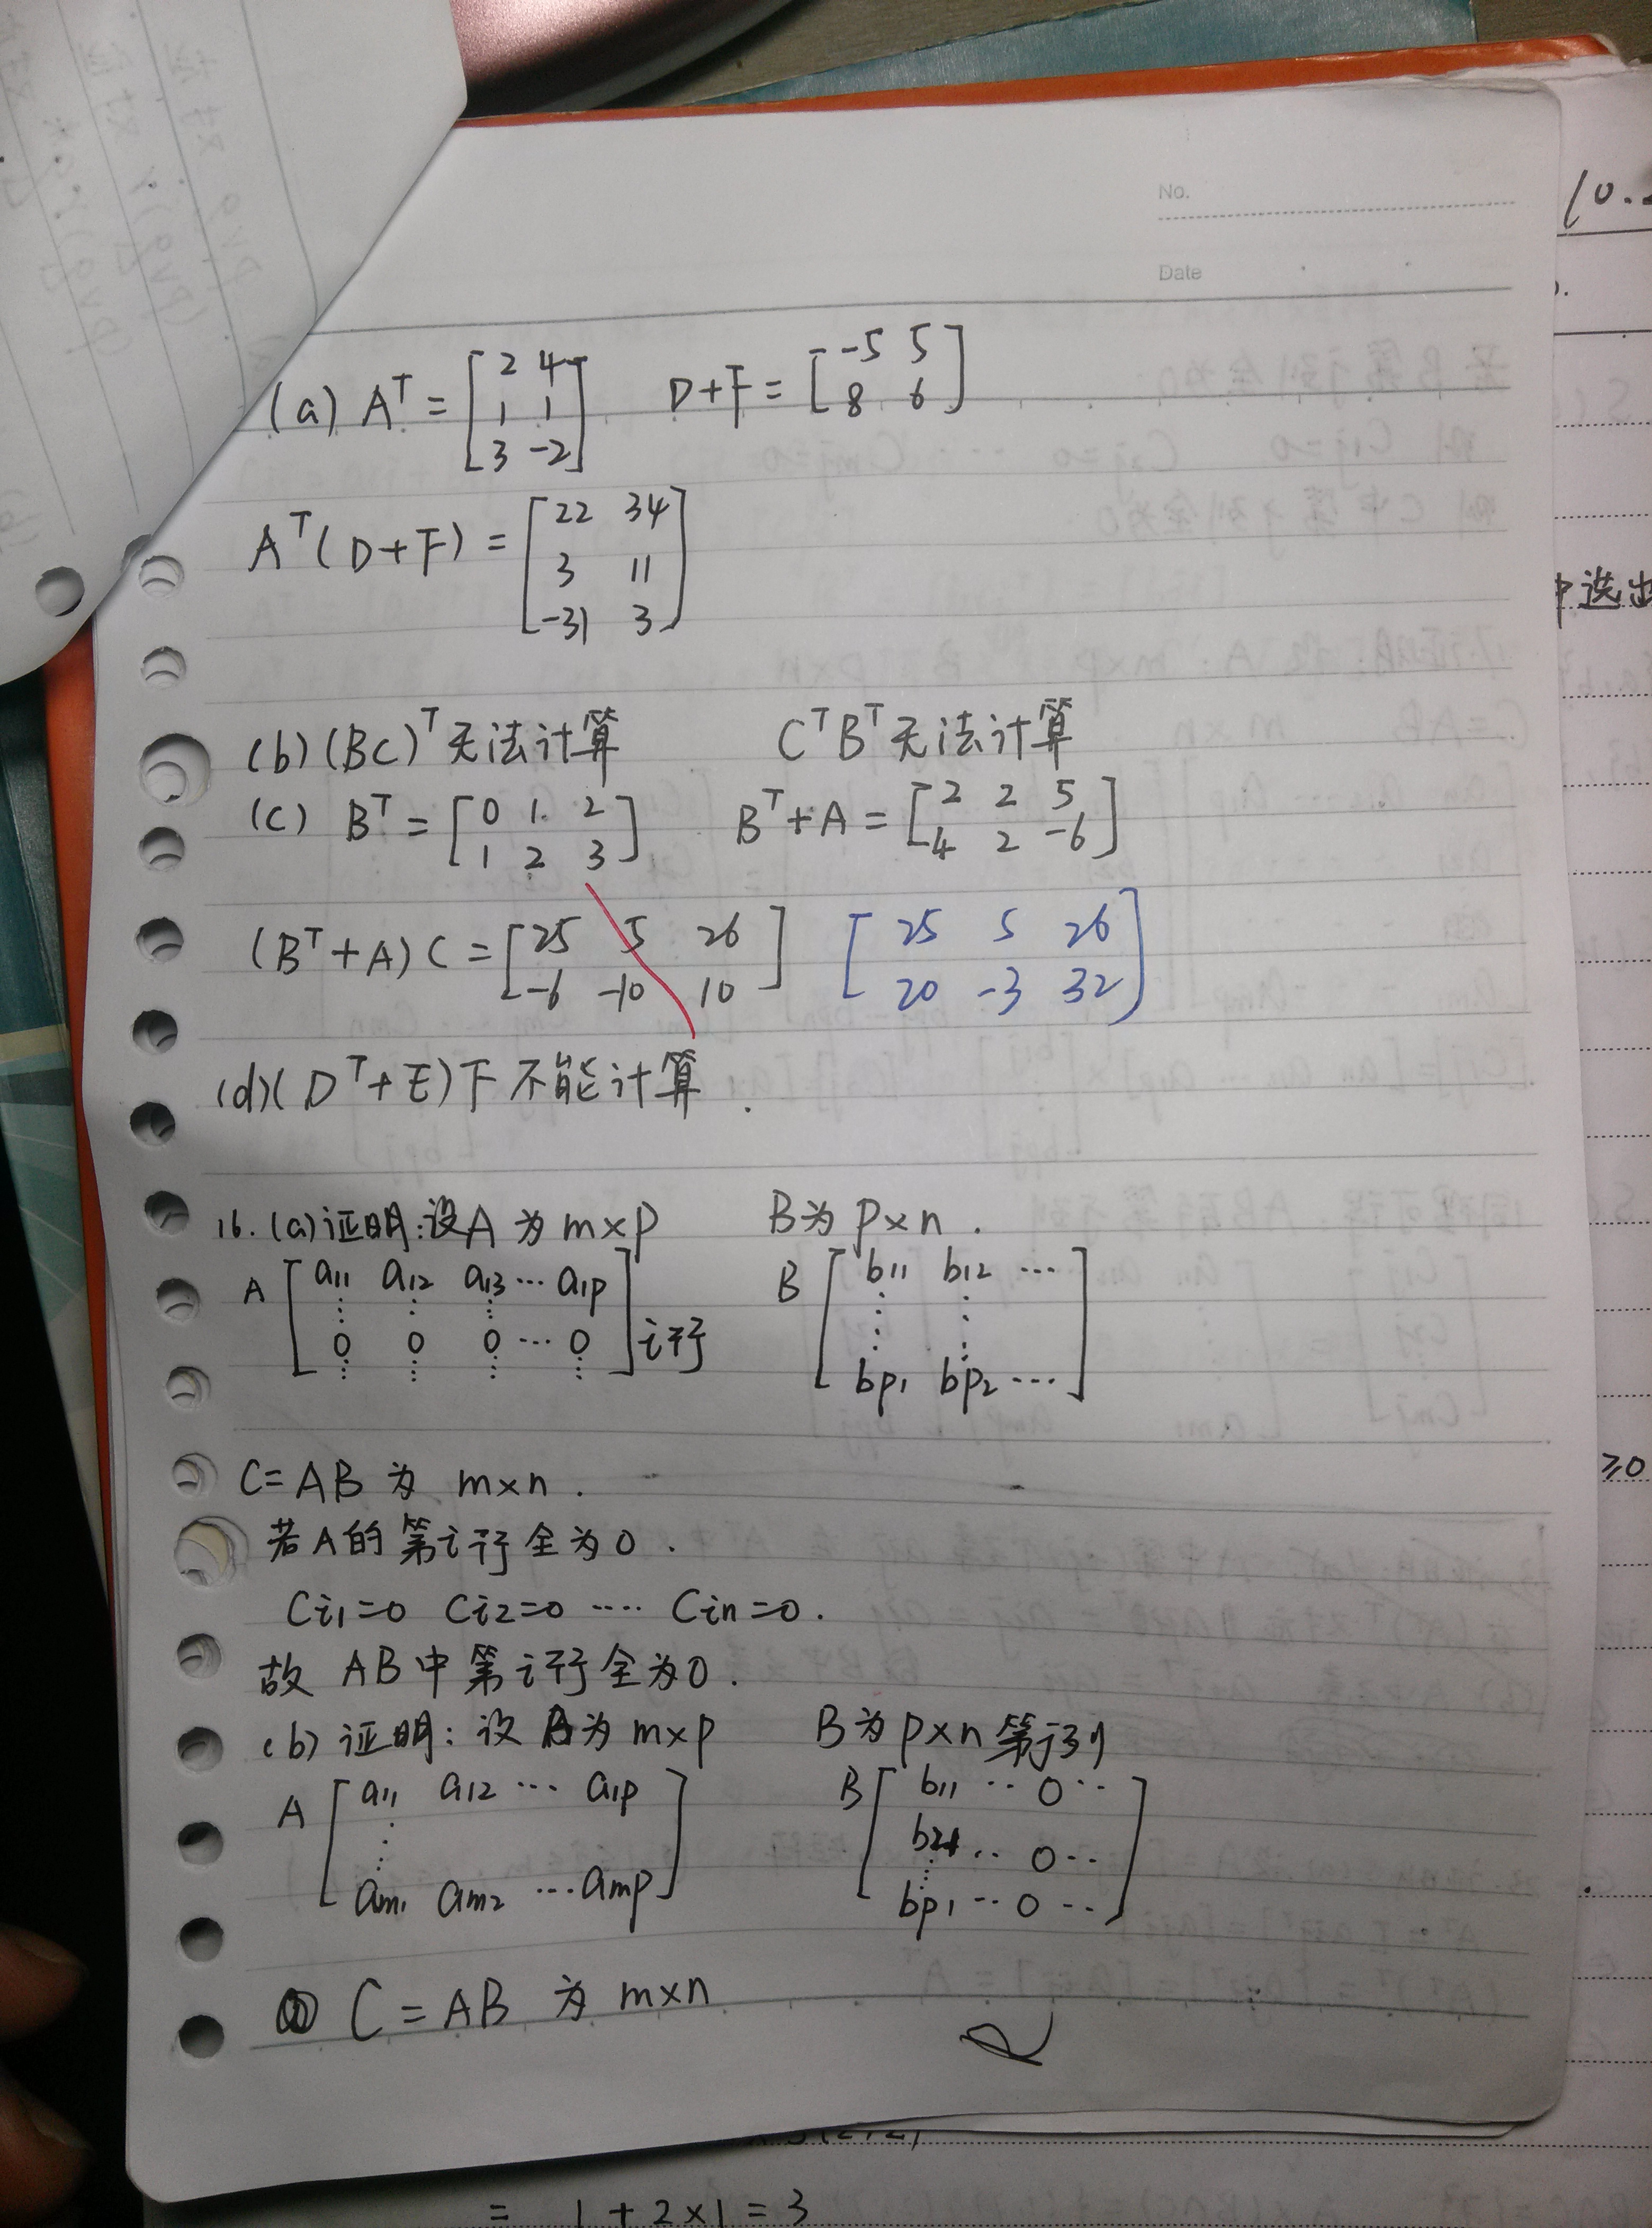 No.
Date
(a) Aᵀ = [2 4; 1 1; 3 -2] D+F = [-5 5; 8 6]
Aᵀ(D+F) = [22 34; 3 11; -31 3]
(b) (BC)ᵀ无法计算 CᵀBᵀ无法计算
(c) Bᵀ = [0 1 2; 1 2 3] Bᵀ+A = [2 2 5; 4 2 -6]
(Bᵀ+A)C = [25 5 26; -6 -10 10] [25 5 26; 20 -3 32]
(d) (Dᵀ+E)F 不能计算.
16. (a)证明:设A为 m×p B为 p×n.
A [a11 a12 a13 ⋯ a1p; ⋮ ⋮ ⋮ ⋮; 0 0 0 ⋯ 0; ⋮ ⋮ ⋮ ⋮] i行 B [b11 b12 ⋯; ⋮ ⋮; bp1 bp2 ⋯]
C=AB 为 m×n.
若A的第i行全为0.
Ci1=0 Ci2=0 ⋯⋅ Cin=0.
故 AB中第i行全为0.
(b) 证明: 设A为 m×p B为 p×n 第j列
A [a11 a12 ⋯ a1p; ⋮; am1 am2 ⋯ amp] B [b11 ⋅⋅ 0 ⋅⋅; b21 ⋅⋅ 0 ⋅⋅; ⋮; bp1 ⋅⋅ 0 ⋅⋅]
C = AB 为 m×n
中选出
≥0
= 1+2×1=3